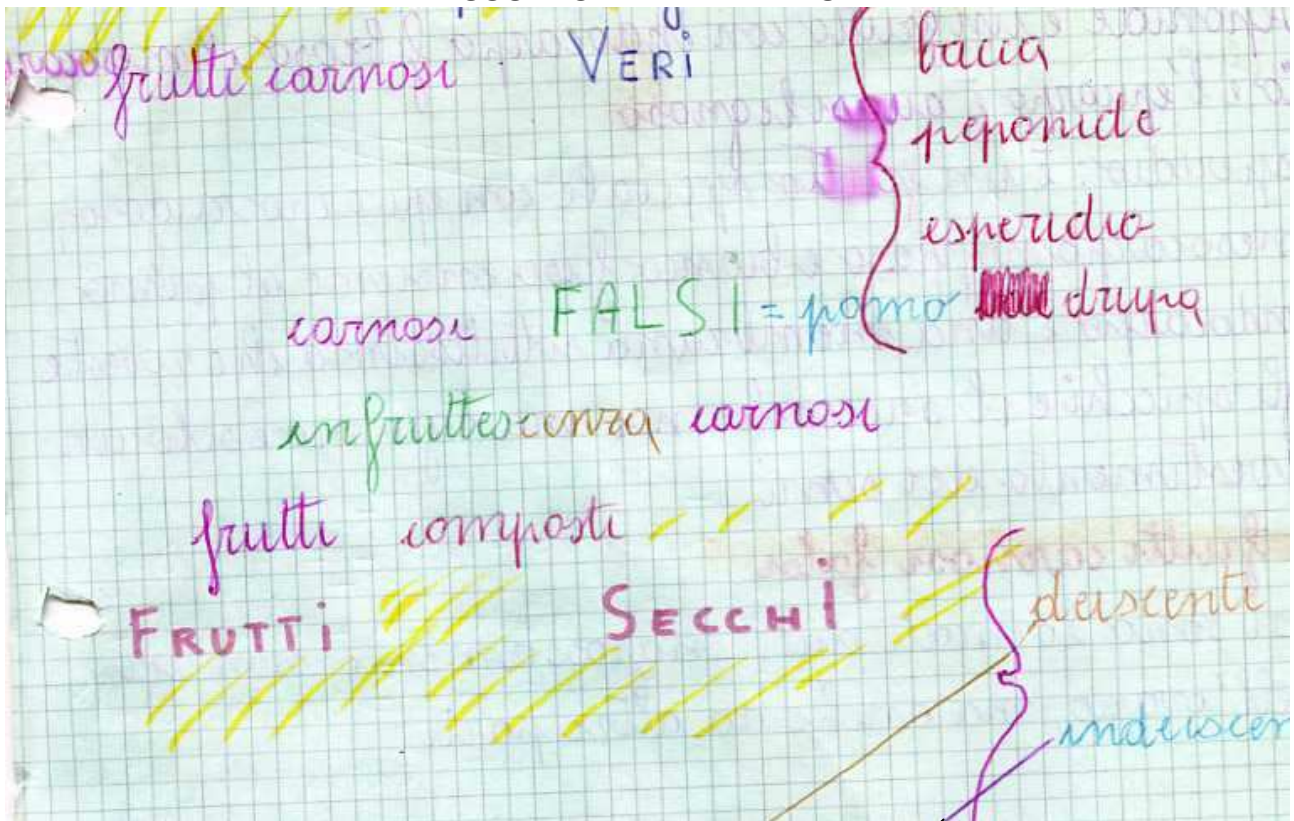 frutti carnosi VERi
bacca
peponide
esperidio
carnosi FALSI = pomo drupa
infruttescenza carnosi
frutti composti
FRUTTi SECCHI
deiscenti
indeiscen